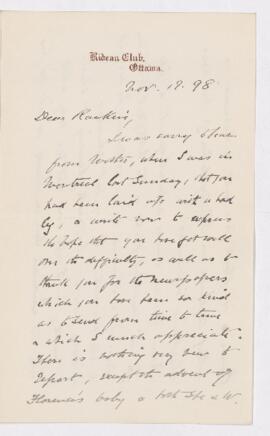 Rideau Club,
Ottawa.
Nov. 19. 98
Dear Rankin,
I was sorry to hear
from Walter, when I was in
Montreal last Sunday, that you
had been laid up with a bad
leg, & write now to express
the hope that you have got well
over the difficulty, as well as to
thank you for the newspapers
which you have been so kind
as to send from time to time
& which I much appreciate.
There is nothing very new to
report, except the advent of
Florence's baby & both she & W.